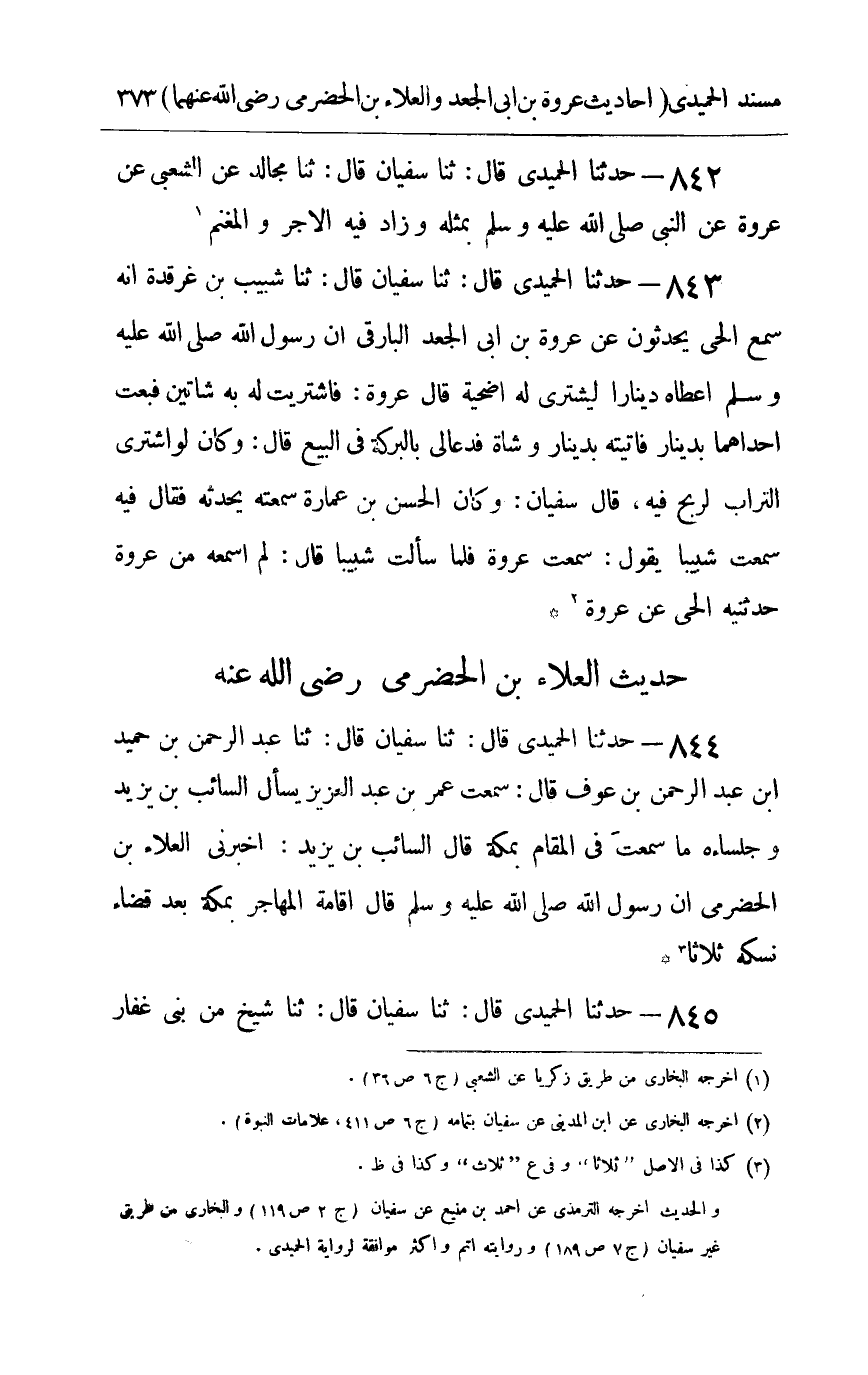 مسند الحميدى ( احاديث عروة بن ابى الجعد والعلاء بن الحضرمى رضى الله عنهما ) ٣٧٣
٨٤٢ – حدثنا الحميدى قال : ثنا سفيان قال : ثنا مجالد عن الشعبى عن
عروة عن النبى صلى الله عليه و سلم بمثله و زاد فيه الاجر و المغنم ١
٨٤٣ – حدثنا الحميدى قال : ثنا سفيان قال : ثنا شبيب بن غرقدة انه
سمع الحى يحدثون عن عروة بن ابى الجعد البارقى ان رسول الله صلى الله عليه
و سلم اعطاه دينارا ليشترى له اضحية قال عروة : فاشتريت له به شاتين فبعت
احداهما بدينار فاتيته بدينار و شاة فدعالى بالبركة فى البيع قال : وكان لو اشترى
التراب لربح فيه ، قال سفيان : وكان الحسن بن عمارة سمعته يحدثه فقال فيه
سمعت شبيبا يقول : سمعت عروة فلما سألت شبيبا قال : لم اسمعه من عروة
حدثنيه الحى عن عروة ٢ *
حديث العلاء بن الحضرمى رضى الله عنه
٨٤٤ – حدثنا الحميدى قال : ثنا سفيان قال : ثنا عبد الرحمن بن حميد
ابن عبد الرحمن بن عوف قال : سمعت عمر بن عبد العزيز يسأل السائب بن يزيد
و جلساءه ما سمعتَ فى المقام بمكة قال السائب بن يزيد : اخبرنى العلاء بن
الحضرمى ان رسول الله صلى الله عليه و سلم قال اقامة المهاجر بمكة بعد قضاء
نسكه ثلاثا ٣ *
٨٤٥ – حدثنا الحميدى قال : ثنا سفيان قال : ثنا شيخ من بنى غفار
(١) اخرجه البخارى من طريق زكريا عن الشعبى ( ج ٦ ص ٣٦ ) .
(٢) اخرجه البخارى عن ابن المدينى عن سفيان بتمامه ( ج ٦ ص ٤١١ ، علامات النبوة ) .
(٣) كذا فى الاصل ”ثلاثا“ و فى ع ”ثلاث“ و كذا فى ظ .
و الحديث اخرجه الترمذى عن احمد بن منيع عن سفيان ( ج ٢ ص ١١٩ ) و البخارى من طريق
غير سفيان ( ج ٧ ص ١٨٩ ) و روايته اتم و اكثر موافقة لرواية الحميدى .